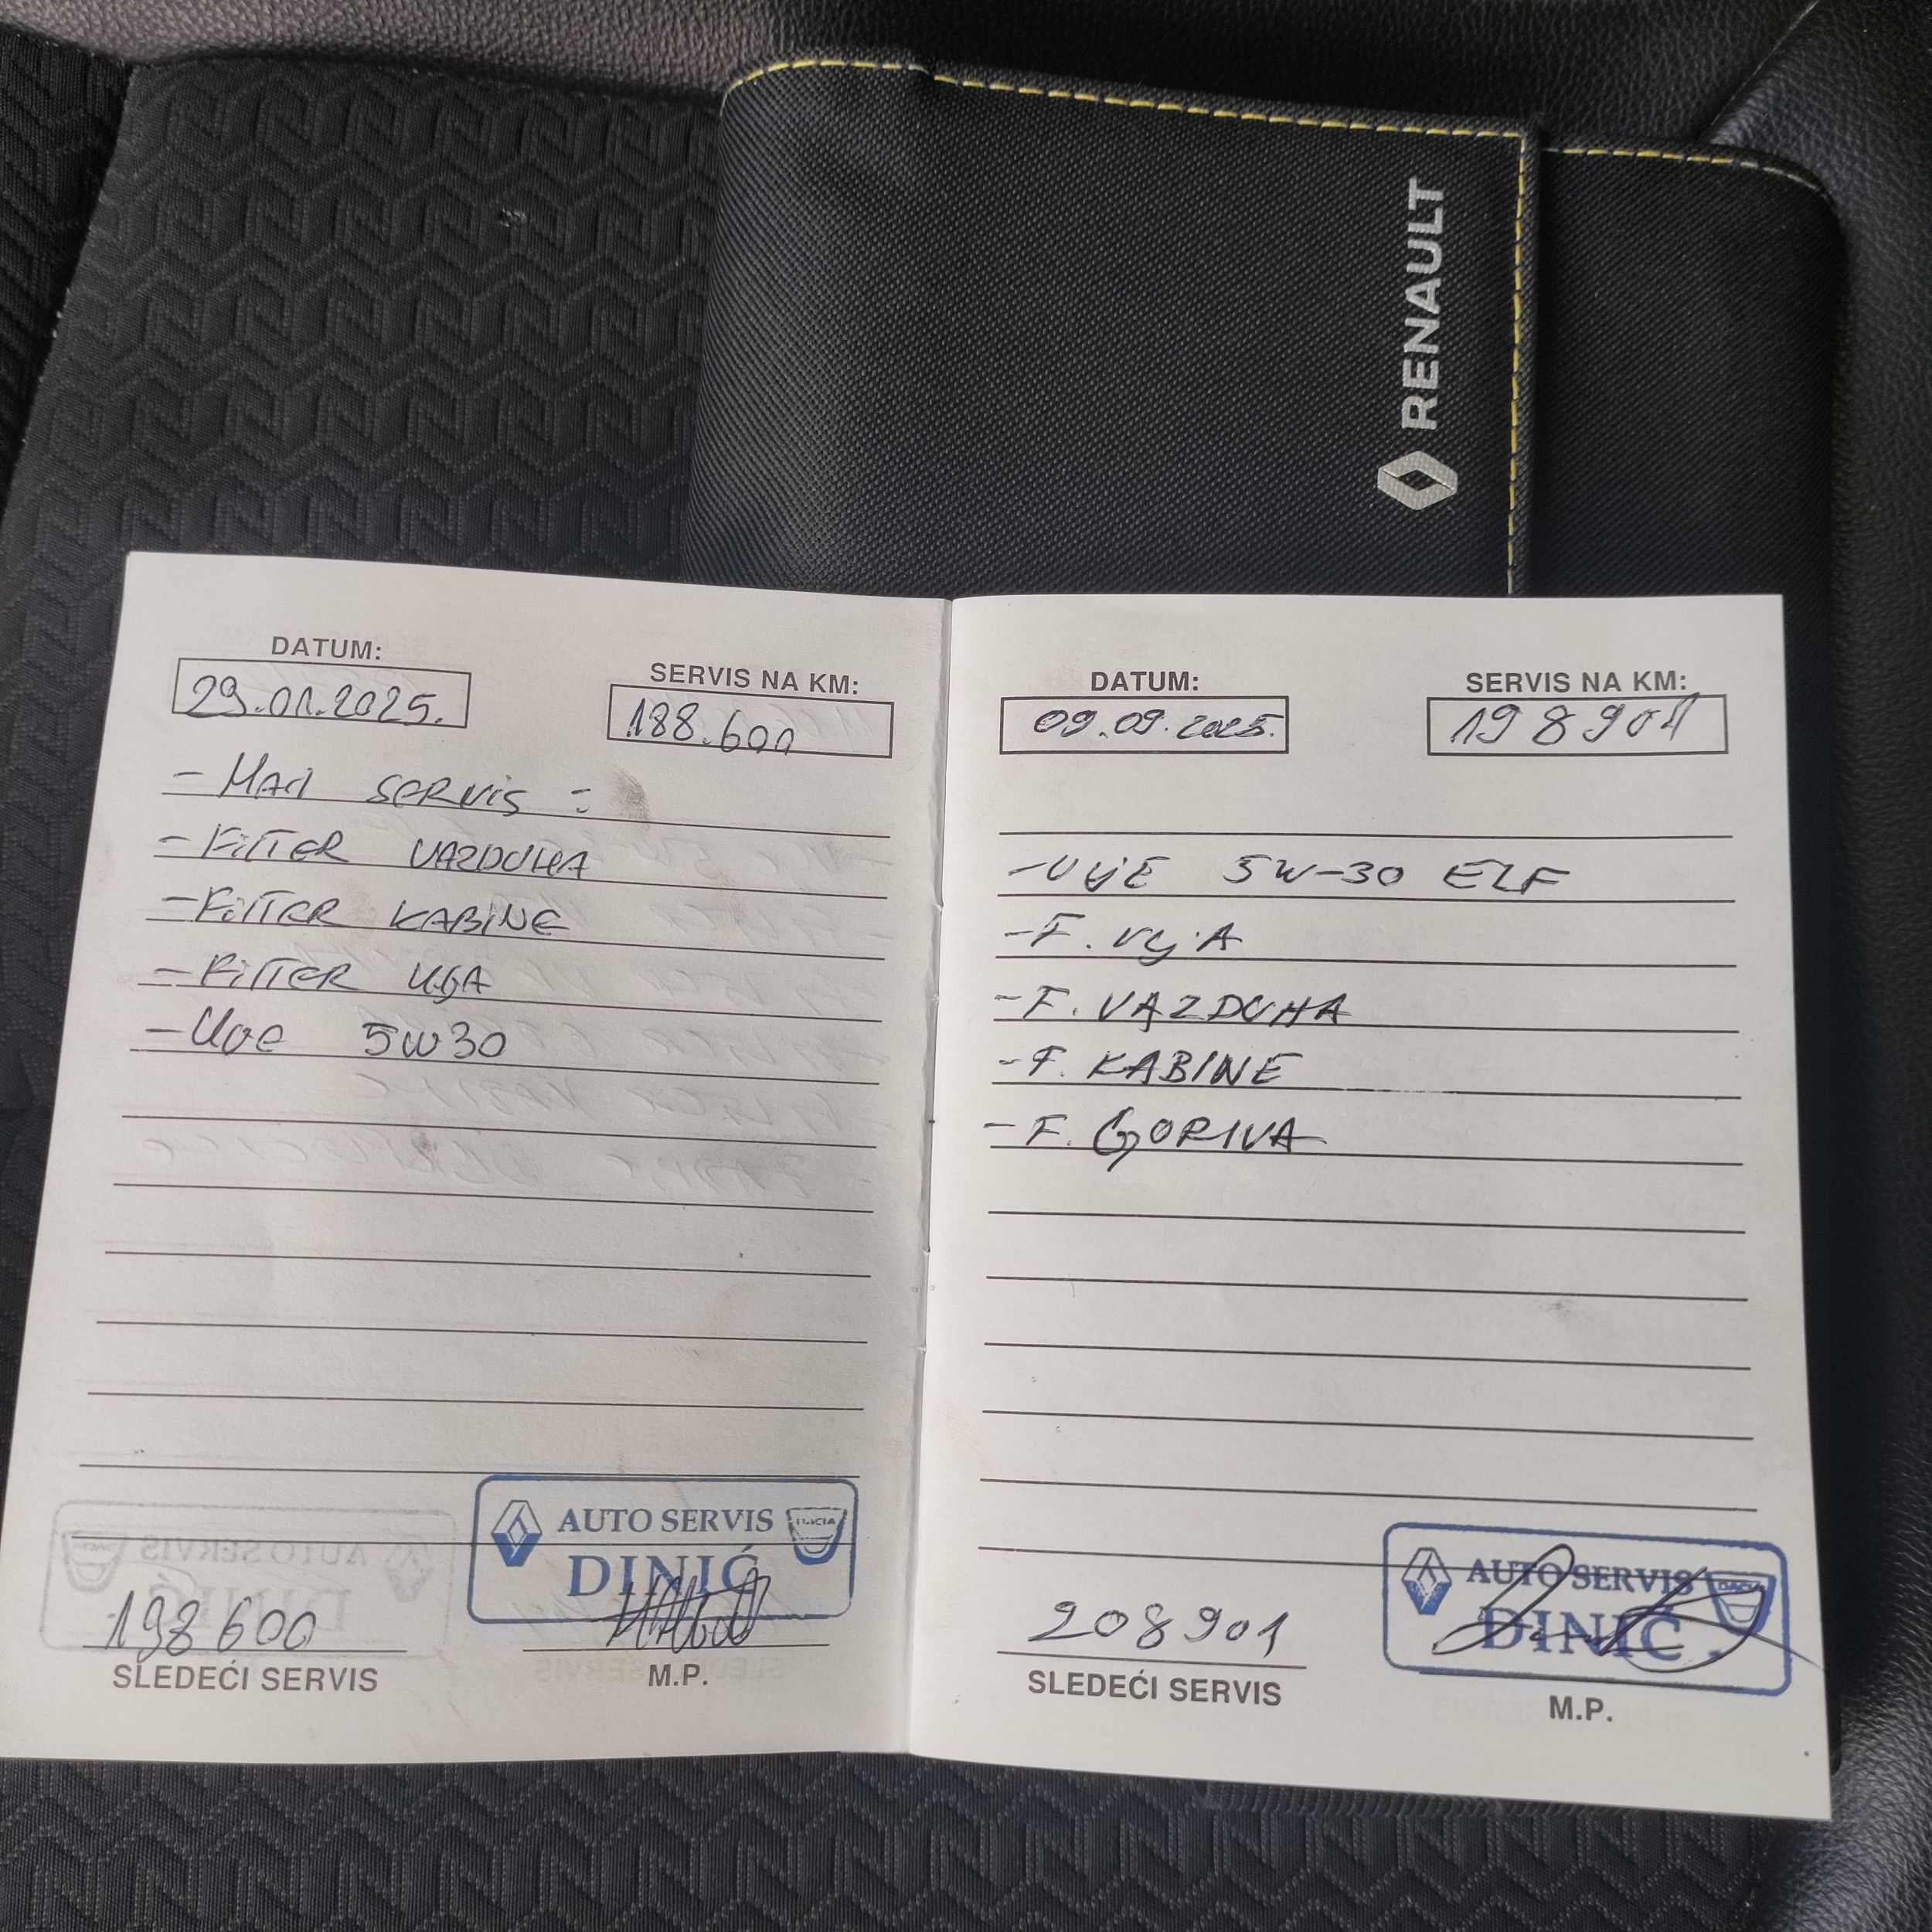 RENAULT
DATUM:
29.01.2025.
SERVIS NA KM:
188.600
- MALI SERVIS :
- FILTER VAZDUHA
- FILTER KABINE
- FILTER ULJA
- Ulje 5W30
198 600
SLEDEĆI SERVIS
AUTO SERVIS
DACIA
DINIĆ
M.P.
DATUM:
09.09.2025.
SERVIS NA KM:
198901
- ULJE 5W-30 ELF
- F. ULJA
- F. VAZDUHA
- F. KABINE
- F. GORIVA
208901
SLEDEĆI SERVIS
AUTO SERVIS
DACIA
DINIĆ
M.P.